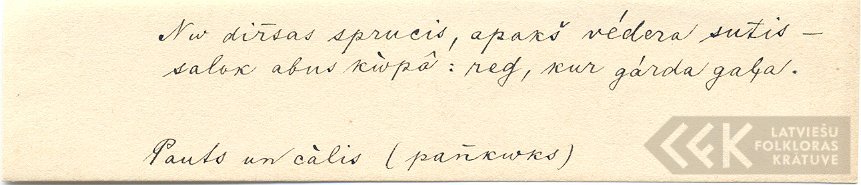 Nw dir̃sas sprucis, apakš vẽdera sutis –
salok abus kẁpâ : reg, kur gárda gaļa.
Pauts un càlis (pañkwks)
LATVIEŠU
FOLKLORAS
KRĀTUVE